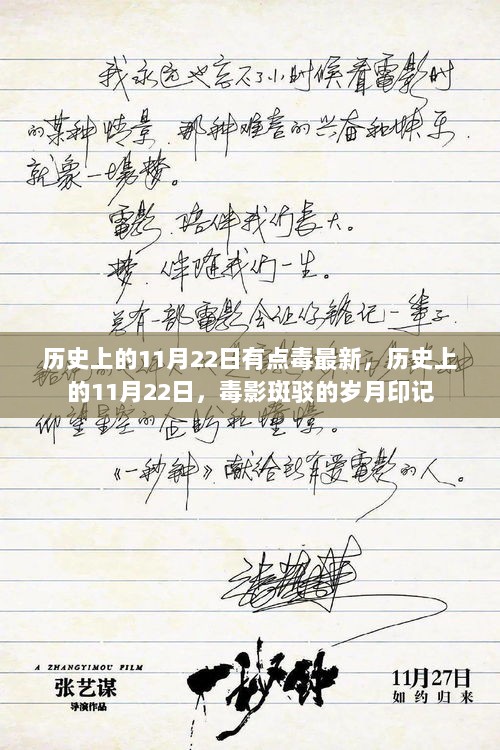 我永远也忘不了小时候看電影时
的某种情景.那种难言的兴奋和快乐.
就象一場梦。
電影.陪伴我们長大。
梦.伴隨我们一生。
总有一部電影会让你銘记一辈子.
历史上的11月22日有点毒最新，历史上
的11月22日，毒影斑驳的岁月印记
仰望星空的企盼和憧憬。
《一秒钟》献给所有爱電影的人。
A ZHANGYIMOU FILM
张艺谋
导演作品
一秒钟
11月27日
如约归来